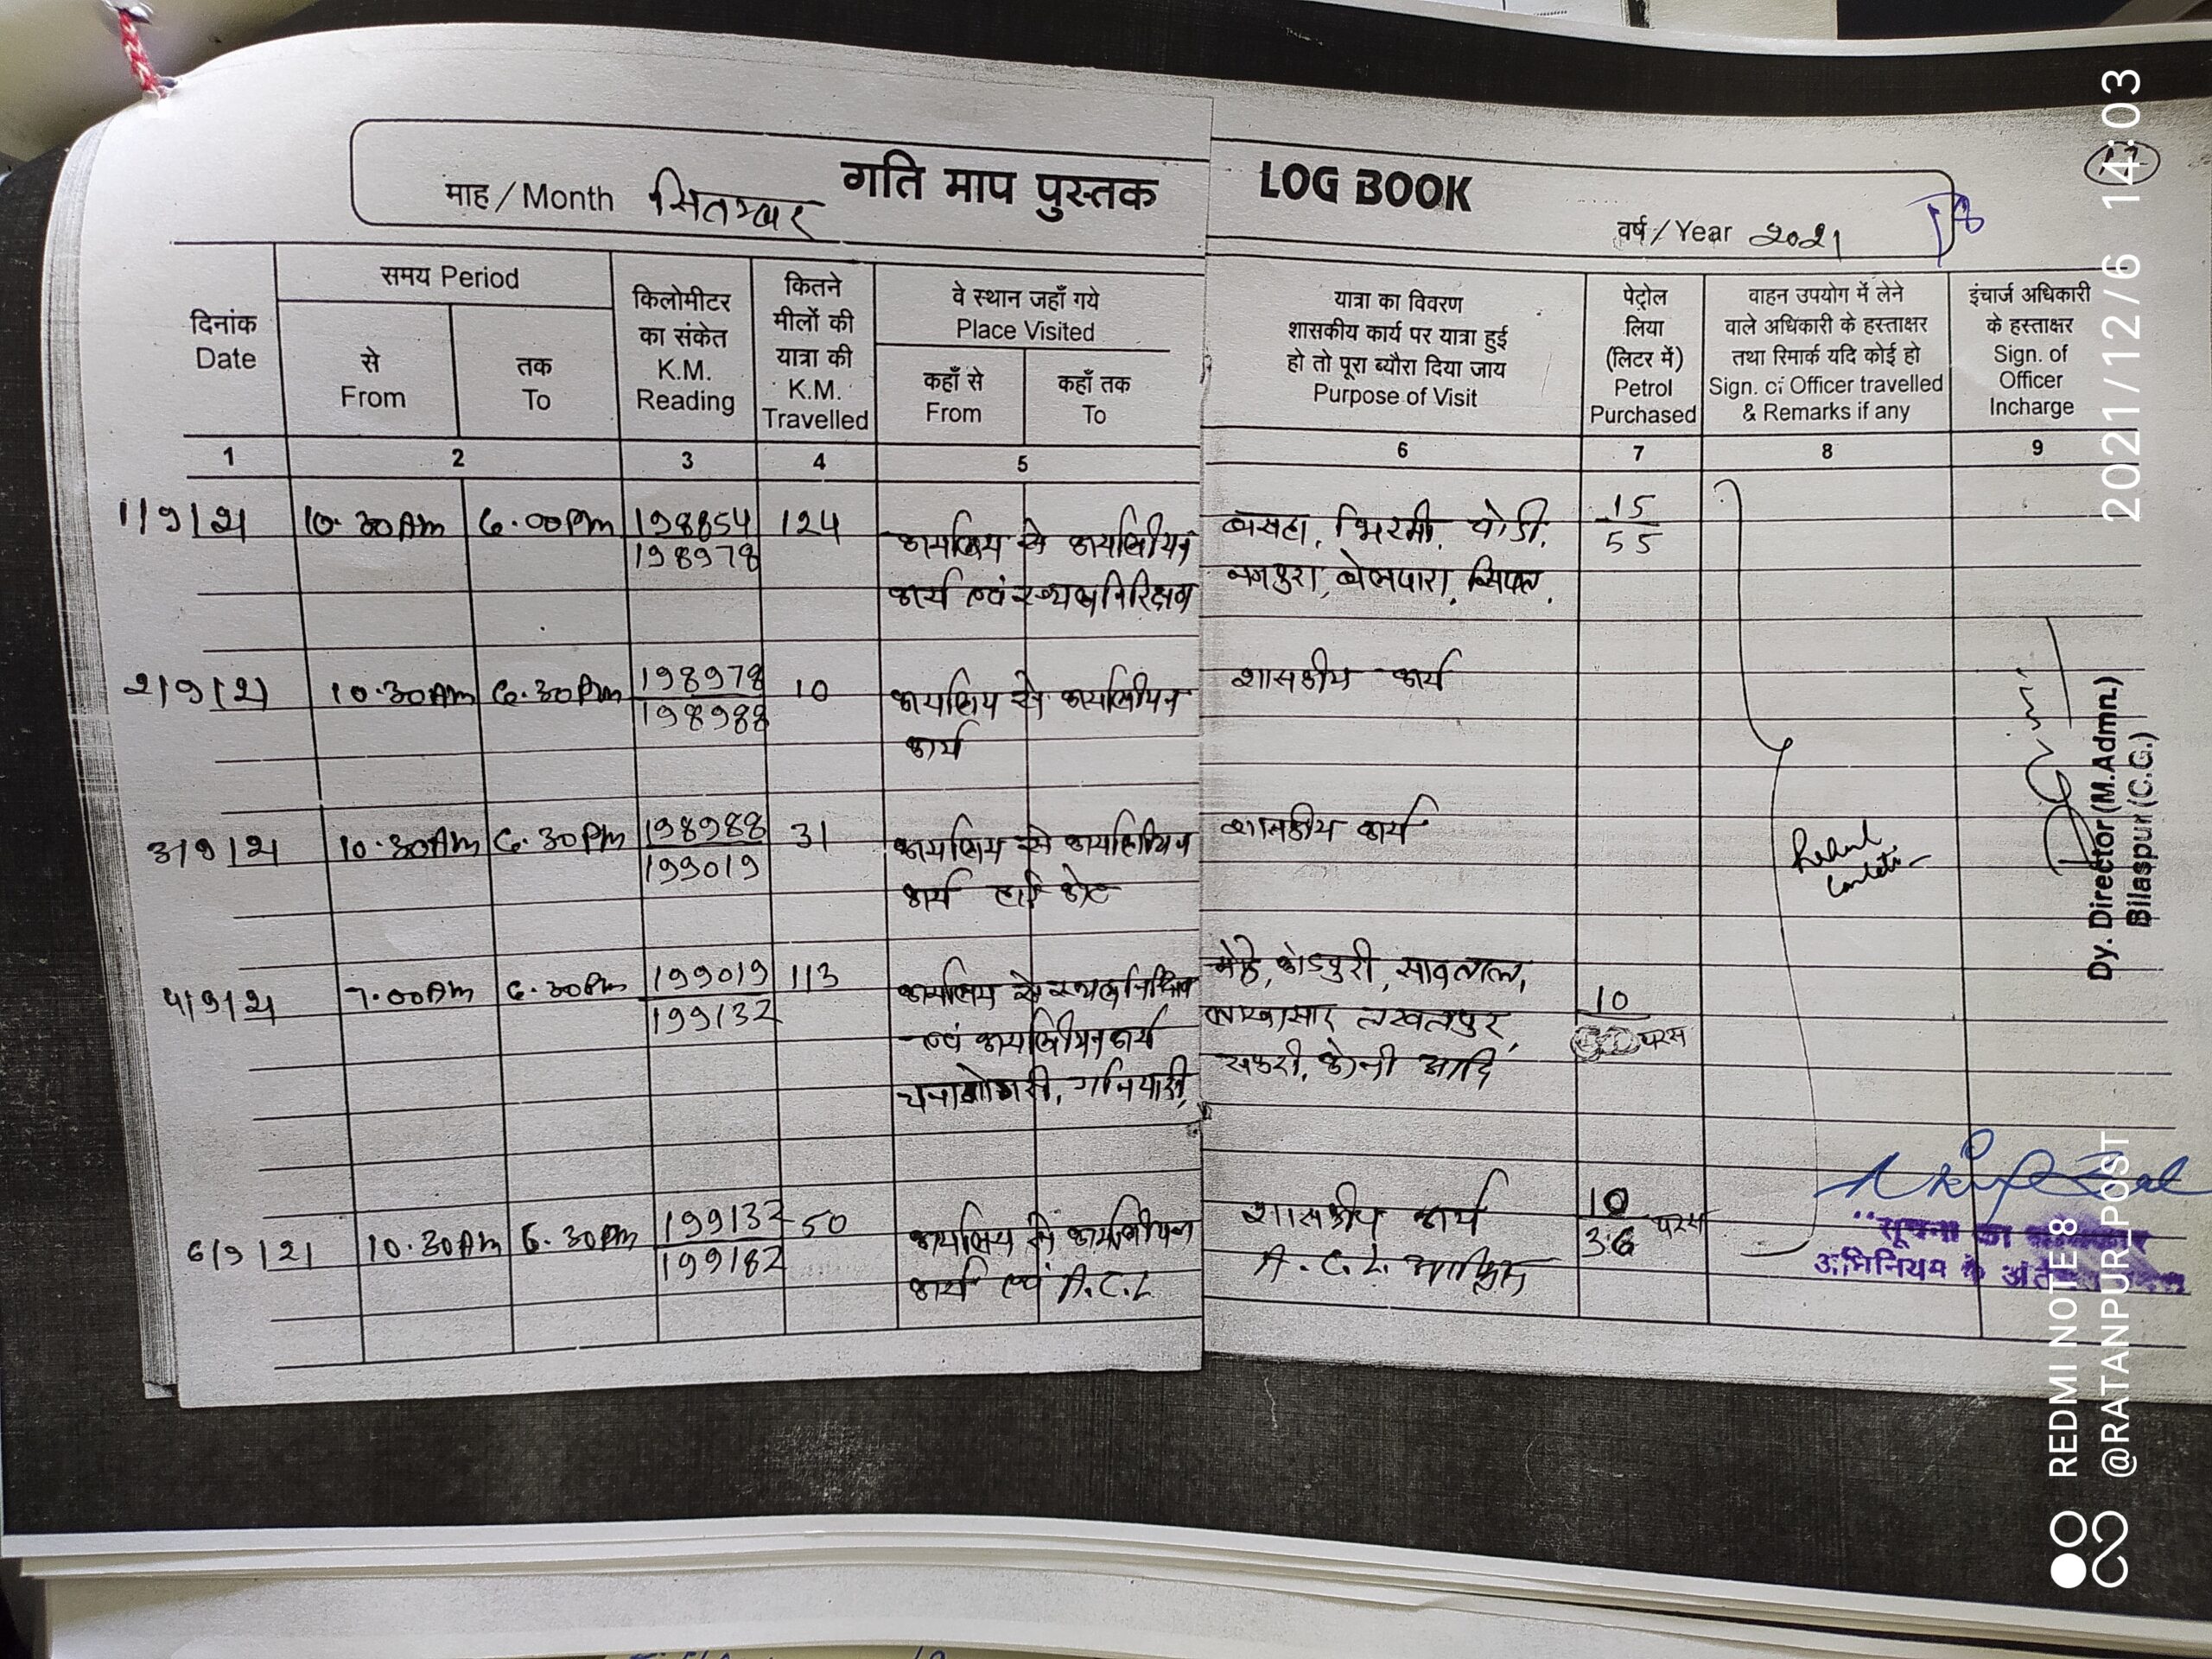 माह / Month सितम्बर गति माप पुस्तक LOG BOOK
वर्ष / Year 2021
दिनांक
Date
समय Period
से
From
तक
To
किलोमीटर
का संकेत
K.M.
Reading
कितने
मीलों की
यात्रा की
K.M.
Travelled
वे स्थान जहाँ गये
Place Visited
कहाँ से
From
कहाँ तक
To
यात्रा का विवरण
शासकीय कार्य पर यात्रा हुई
हो तो पूरा ब्यौरा दिया जाय
Purpose of Visit
पेट्रोल
लिया
(लिटर में)
Petrol
Purchased
वाहन उपयोग में लेने
वाले अधिकारी के हस्ताक्षर
तथा रिमार्क यदि कोई हो
Sign. of Officer travelled
& Remarks if any
इंचार्ज अधिकारी
के हस्ताक्षर
Sign. of
Officer
Incharge
1 2 3 4 5 6 7 8 9
1/9/21 10.30Am 6.00Pm 198854 124
198978
कार्यालय से कार्यालीयन
कार्य एवं स्थल निरिक्षण
बेलपारा,
15
55
2/9/21 10.30Am 6.30Pm 198978 10
198988
कार्यालय से कार्यालीयन
कार्य
शासकीय कार्य
3/9/21 10.30Am 6.30Pm 198988 31
199019
कार्यालय से कार्यालीयन
कार्य हाई कोर्ट
शासकीय कार्य
4/9/21 7.00Am 6.30Pm 199019 113
199132
कार्यालय से स्थल निरिक्षण
एवं कार्यालीयन कार्य
गनियारी,
तखतपुर,
सकरी, कोनी आदि
10
6/9/21 10.30Am 6.30Pm 199132 50
199182
कार्यालय से कार्यालीयन
कार्य एवं A.C.L
शासकीय कार्य
A.C.L. आफिस
10
36
Dy. Director (M.Admn.)
Bilaspur (C.G.)
"सूचना का
अधिनियम के अंत
2021/12/6 14:03
REDMI NOTE 8
@RATANPUR_POST